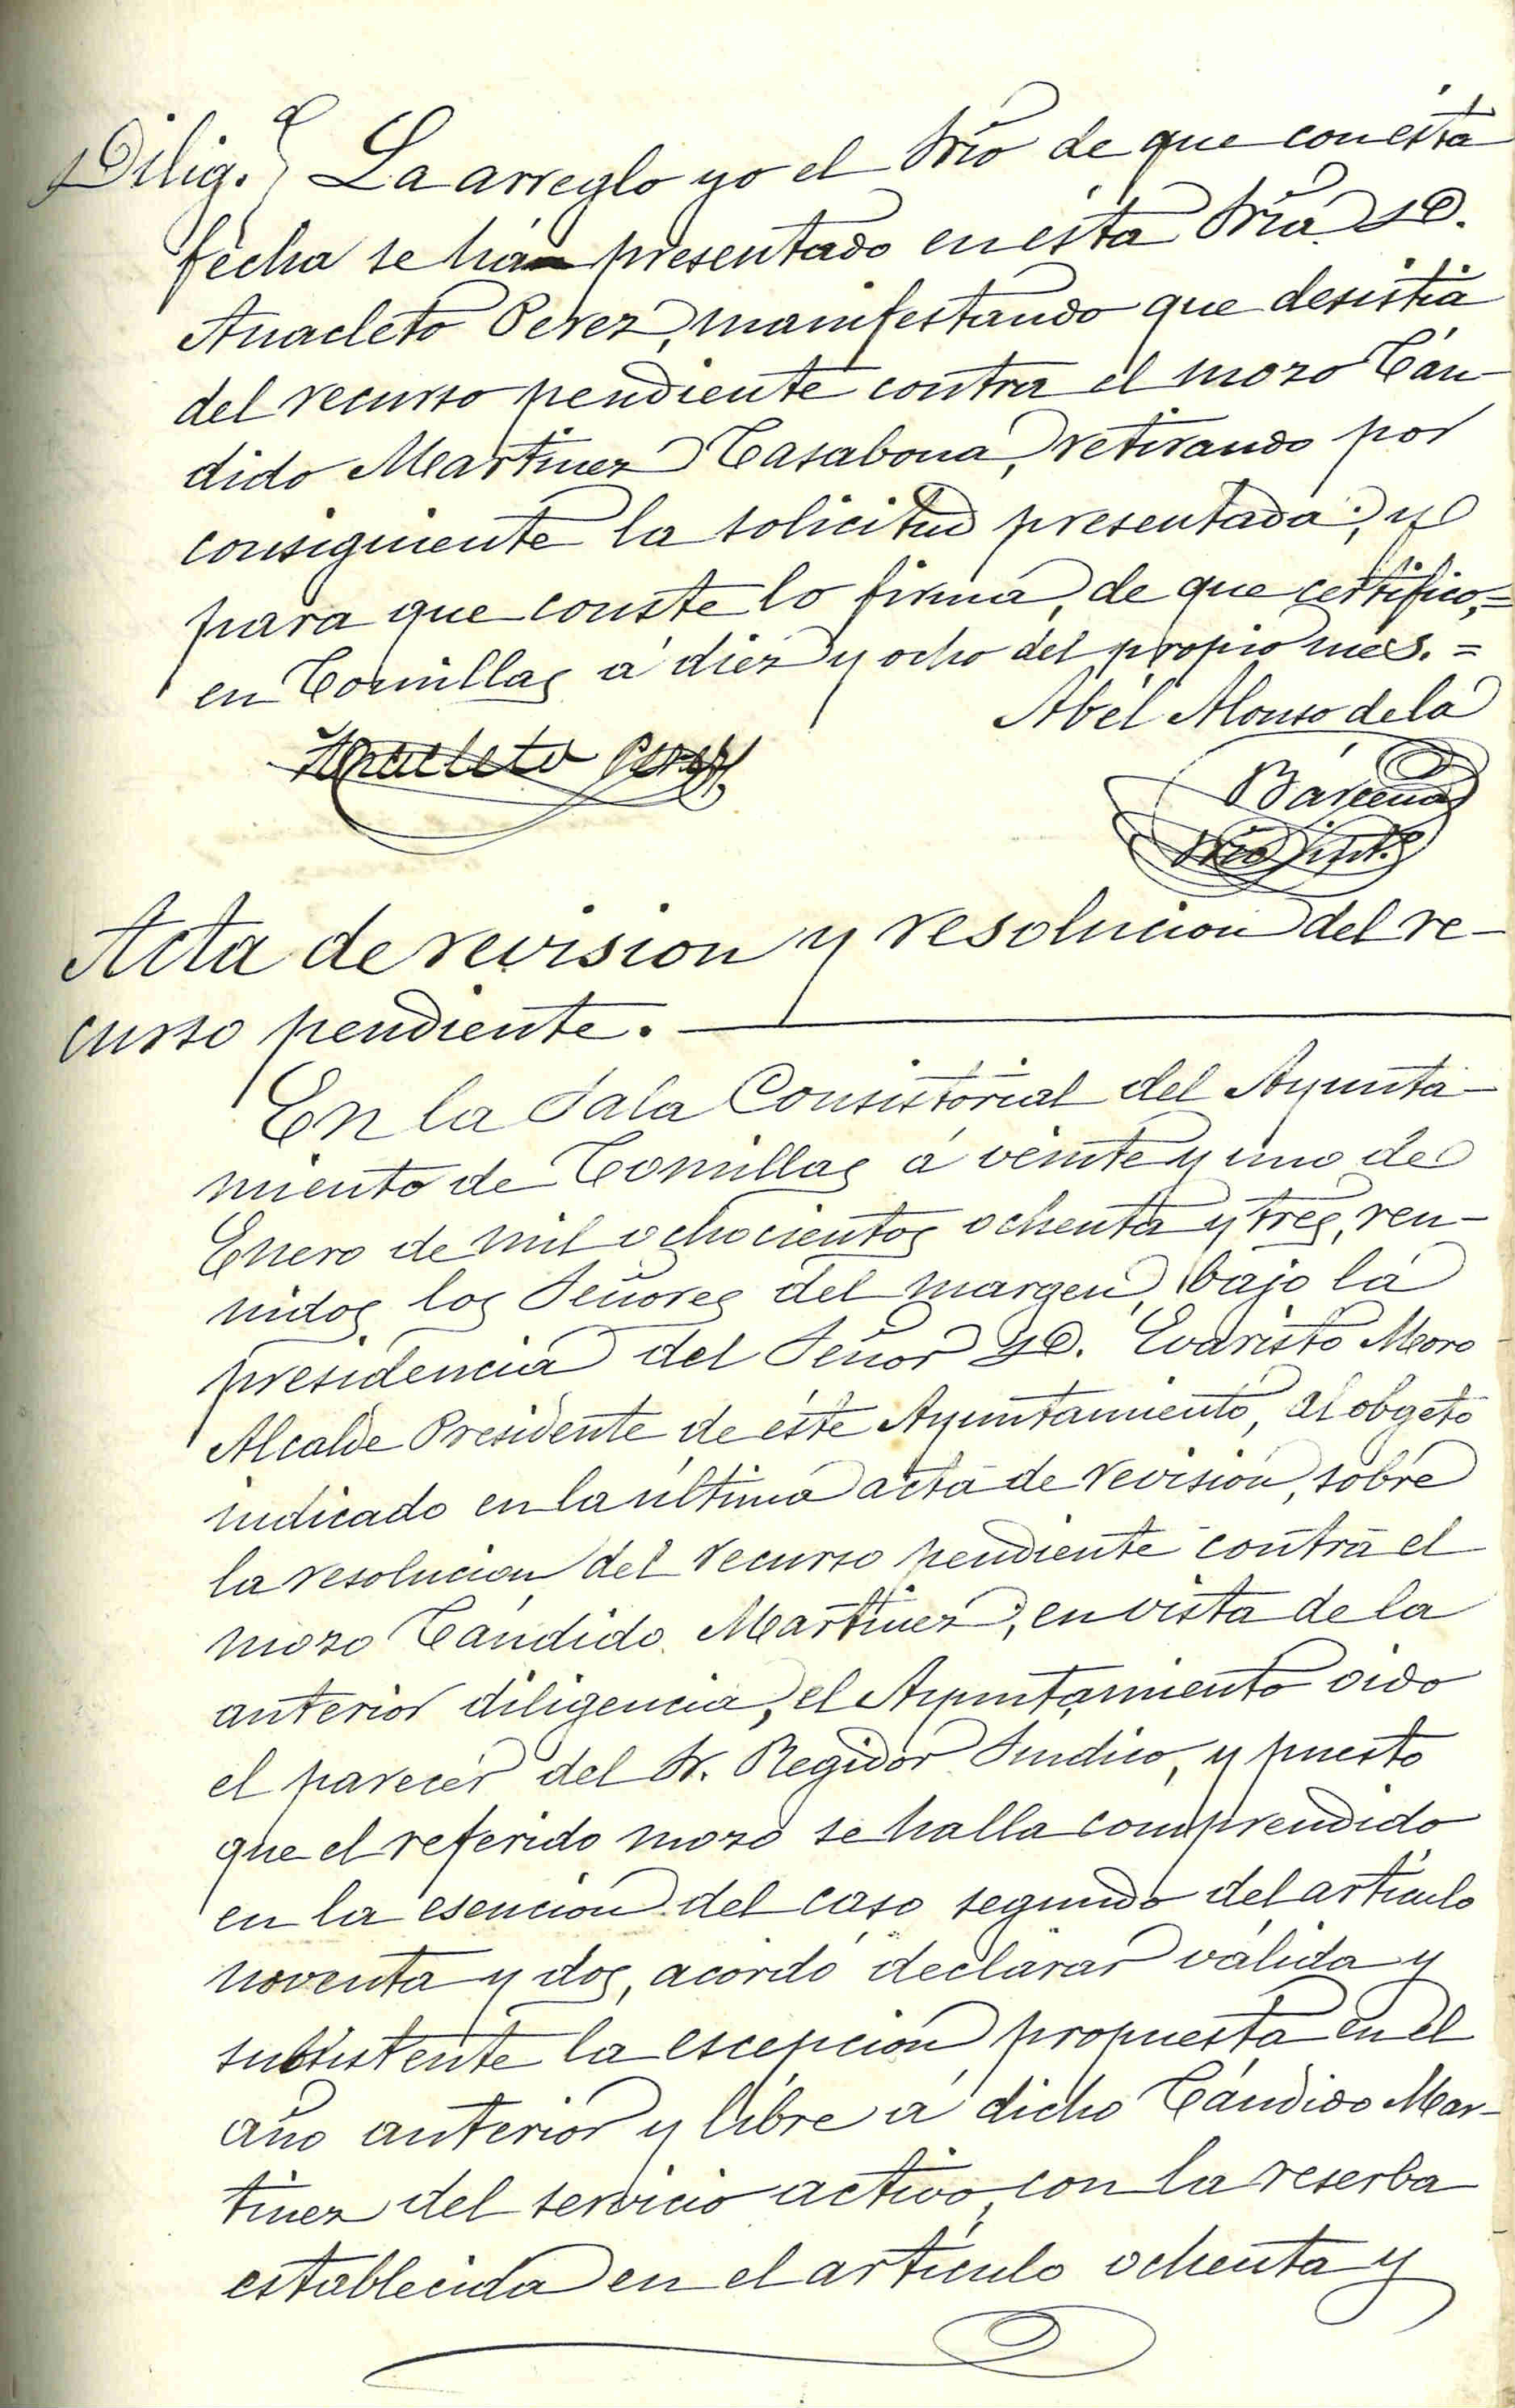 Dilig.} La arreglo yo el Srio de que con esta
fecha se há presentado en ésta Sría D.
Anacleto Perez, manifestando que desistia
del recurso pendiente contra el mozo Cán-
dido Martinez Casabona, retirando por
consiguiente la solicitud presentada; y
para que conste lo firma, de que certifico,=
en Comillas á diez y ocho del propio mes.=
Abél Alonso de la
Anacleto Perez
Bárcena
Srio intº
Acta de revision y resolucion del re-
curso pendiente.
En la Sala Consistorial del Ayunta-
miento de Comillas á veinte y uno de
Enero de mil ochocientos ochenta y tres, reu-
nidos los Señores del margen, bajo la
presidencia del Señor D. Evaristo Moro
Alcalde Presidente de éste Ayuntamiento, al obgeto
indicado en la última acta de revisión, sobre
la resolucion del recurso pendiente contra el
mozo Cándido Martinez; en vista de la
anterior diligencia, el Ayuntamiento oido
el parecer del Sr. Regidor Sindico, y puesto
que el referido mozo se halla comprendido
en la esencion del caso segundo del artículo
noventa y dos, acordó declarar válida y
subsistente la escepcion propuesta en el
año anterior y libre á dicho Cándido Mar-
tinez del servicio activo, con la reserba
establecida en el artículo ochenta y